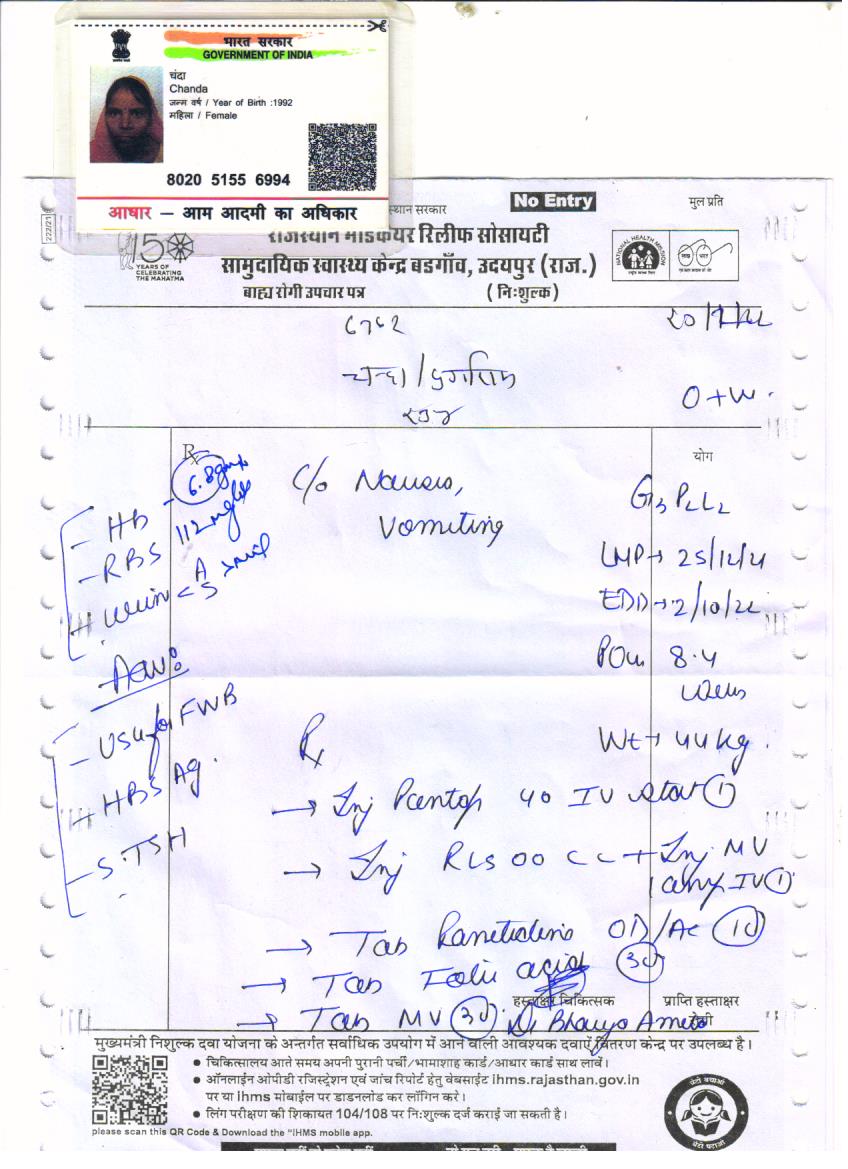 भारत सरकार
GOVERNMENT OF INDIA
चंदा
Chanda
जन्म वर्ष / Year of Birth :1992
महिला / Female
8020 5155 6994
आधार – आम आदमी का अधिकार
222/21
स्थान सरकार
No Entry
मुल प्रति
150
YEARS OF
CELEBRATING
THE MAHATMA
राजस्थान मेडिकेयर रिलीफ सोसायटी
सामुदायिक स्वास्थ्य केन्द्र बडगाँव, उदयपुर (राज.)
बाह्य रोगी उपचार पत्र (निःशुल्क)
NATIONAL HEALTH MISSION
6762
चन्दा /
O +ve
Rx
योग
C/o Nausea,
Vomiting
- HB - 6.8 gm%
- RBS 112 mg/dl
- Urine < A S > nil
G3 P2 L2
LMP → 25/12/21
EDD → 2/10/22
POG 8.4
weeks
Wt → 44 kg.
Adv:
- USG for FWB
- HBS Ag.
- S.TSH
Rx
→ Inj Pantop 40 IV stat (1)
→ Inj RL 500 cc + Inj MV
1 amp IV (1)
→ Tab Ranitidine OD/AC (10)
→ Tab Folic acid (30)
→ Tab MV (30)
हस्ताक्षर चिकित्सक
प्राप्ति हस्ताक्षर
रोगी
मुख्यमंत्री निशुल्क दवा योजना के अन्तर्गत सर्वाधिक उपयोग में आने वाली आवश्यक दवाऐं वितरण केन्द्र पर उपलब्ध है।
● चिकित्सालय आते समय अपनी पुरानी पर्ची/भामाशाह कार्ड/आधार कार्ड साथ लावें।
● ऑनलाईन ओपीडी रजिस्ट्रेशन एवं जांच रिपोर्ट हेतु वेबसाईट ihms.rajasthan.gov.in
पर या ihms मोबाईल पर डाउनलोड कर लॉगिन करे।
● लिंग परीक्षण की शिकायत 104/108 पर निःशुल्क दर्ज कराई जा सकती है।
please scan this QR Code & Download the "IHMS mobile app.
बेटी बचाओ
बेटी पढ़ाओ